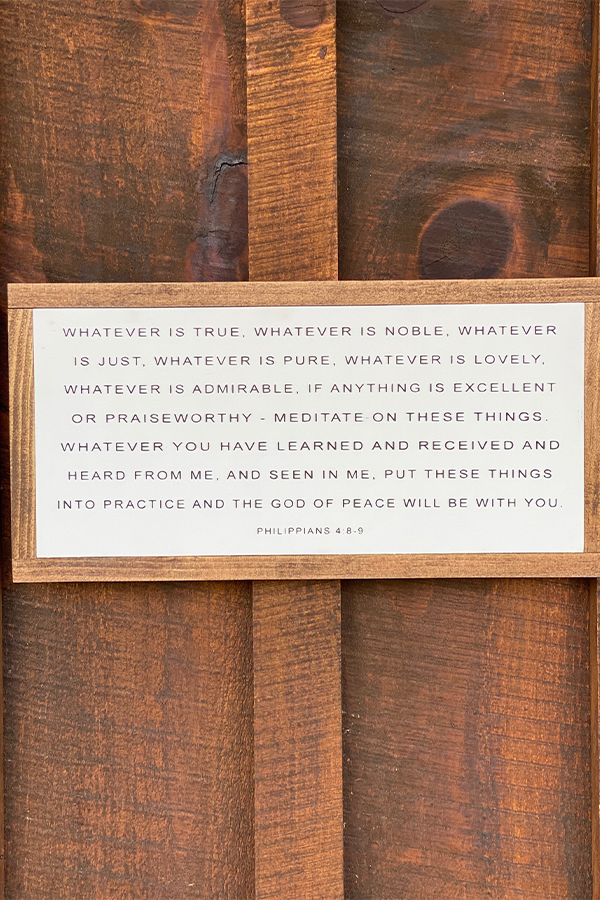 WHATEVER IS TRUE, WHATEVER IS NOBLE, WHATEVER
IS JUST, WHATEVER IS PURE, WHATEVER IS LOVELY,
WHATEVER IS ADMIRABLE, IF ANYTHING IS EXCELLENT
OR PRAISEWORTHY - MEDITATE ON THESE THINGS.
WHATEVER YOU HAVE LEARNED AND RECEIVED AND
HEARD FROM ME, AND SEEN IN ME, PUT THESE THINGS
INTO PRACTICE AND THE GOD OF PEACE WILL BE WITH YOU.
PHILIPPIANS 4:8-9